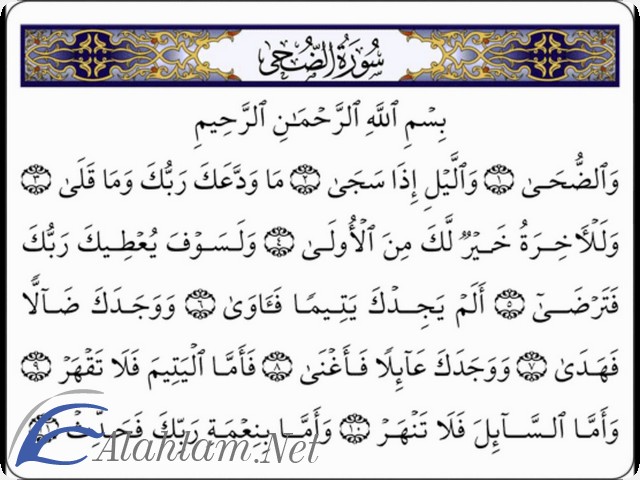 سُورَةُ الضُّحَى
بِسْمِ ٱللَّهِ ٱلرَّحْمَـٰنِ ٱلرَّحِيمِ
وَٱلضُّحَىٰ ١ وَٱلَّيْلِ إِذَا سَجَىٰ ٢ مَا وَدَّعَكَ رَبُّكَ وَمَا قَلَىٰ ٣
وَلَلْـَٔاخِرَةُ خَيْرٌ لَّكَ مِنَ ٱلْأُولَىٰ ٤ وَلَسَوْفَ يُعْطِيكَ رَبُّكَ
فَتَرْضَىٰٓ ٥ أَلَمْ يَجِدْكَ يَتِيمًا فَـَٔاوَىٰ ٦ وَوَجَدَكَ ضَآلًّا
فَهَدَىٰ ٧ وَوَجَدَكَ عَآئِلًا فَأَغْنَىٰ ٨ فَأَمَّا ٱلْيَتِيمَ فَلَا تَقْهَرْ ٩
وَأَمَّا ٱلسَّآئِلَ فَلَا تَنْهَرْ ١٠ وَأَمَّا بِنِعْمَةِ رَبِّكَ فَحَدِّثْ ١١
Alahlam.Net